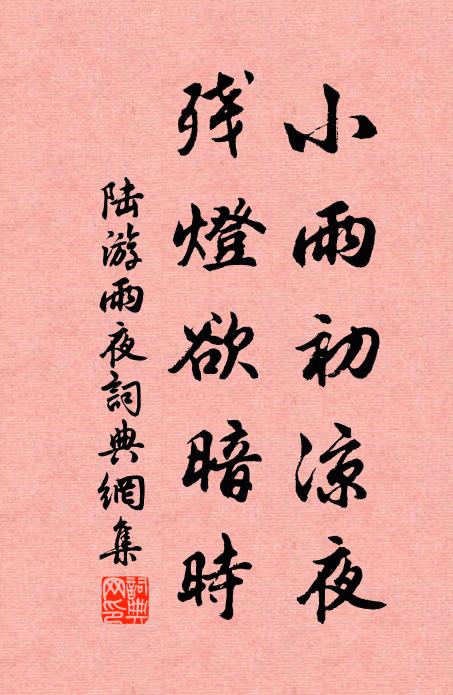 小雨初凉夜
残燈欲暗時
陆游雨夜詞典網集
詞典网印